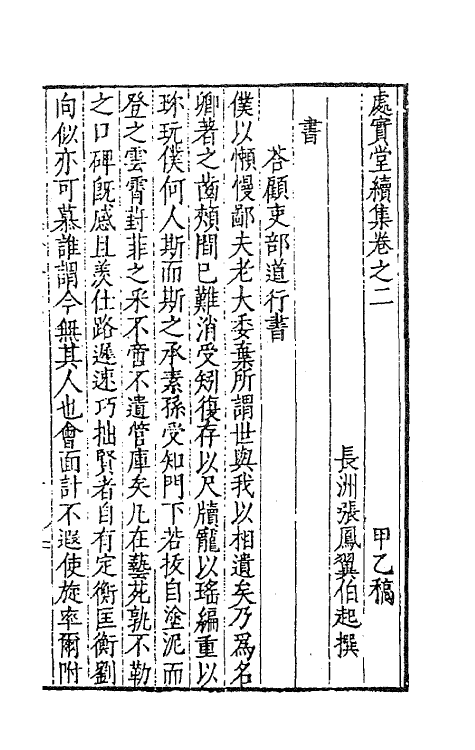 處實堂續集卷之二
甲乙稿
長洲張鳳翼伯起撰
書
荅顧吏部道行書
僕以懶慢鄙夫老大委棄所謂世與我以相遺矣乃為名
卿著之齒頰間已難消受矧復存以尺牘寵以瑤編重以
珎玩僕何人斯而斯之承素孫受知門下若抜自塗泥而
登之雲霄葑菲之采不啻不遺管庫矣凢在藝苑孰不勒
之口碑旣感且羨仕路遲速巧拙賢者自有定衡匡衡劉
向似亦可慕誰謂今無其人也會面計不遐使旋率爾附